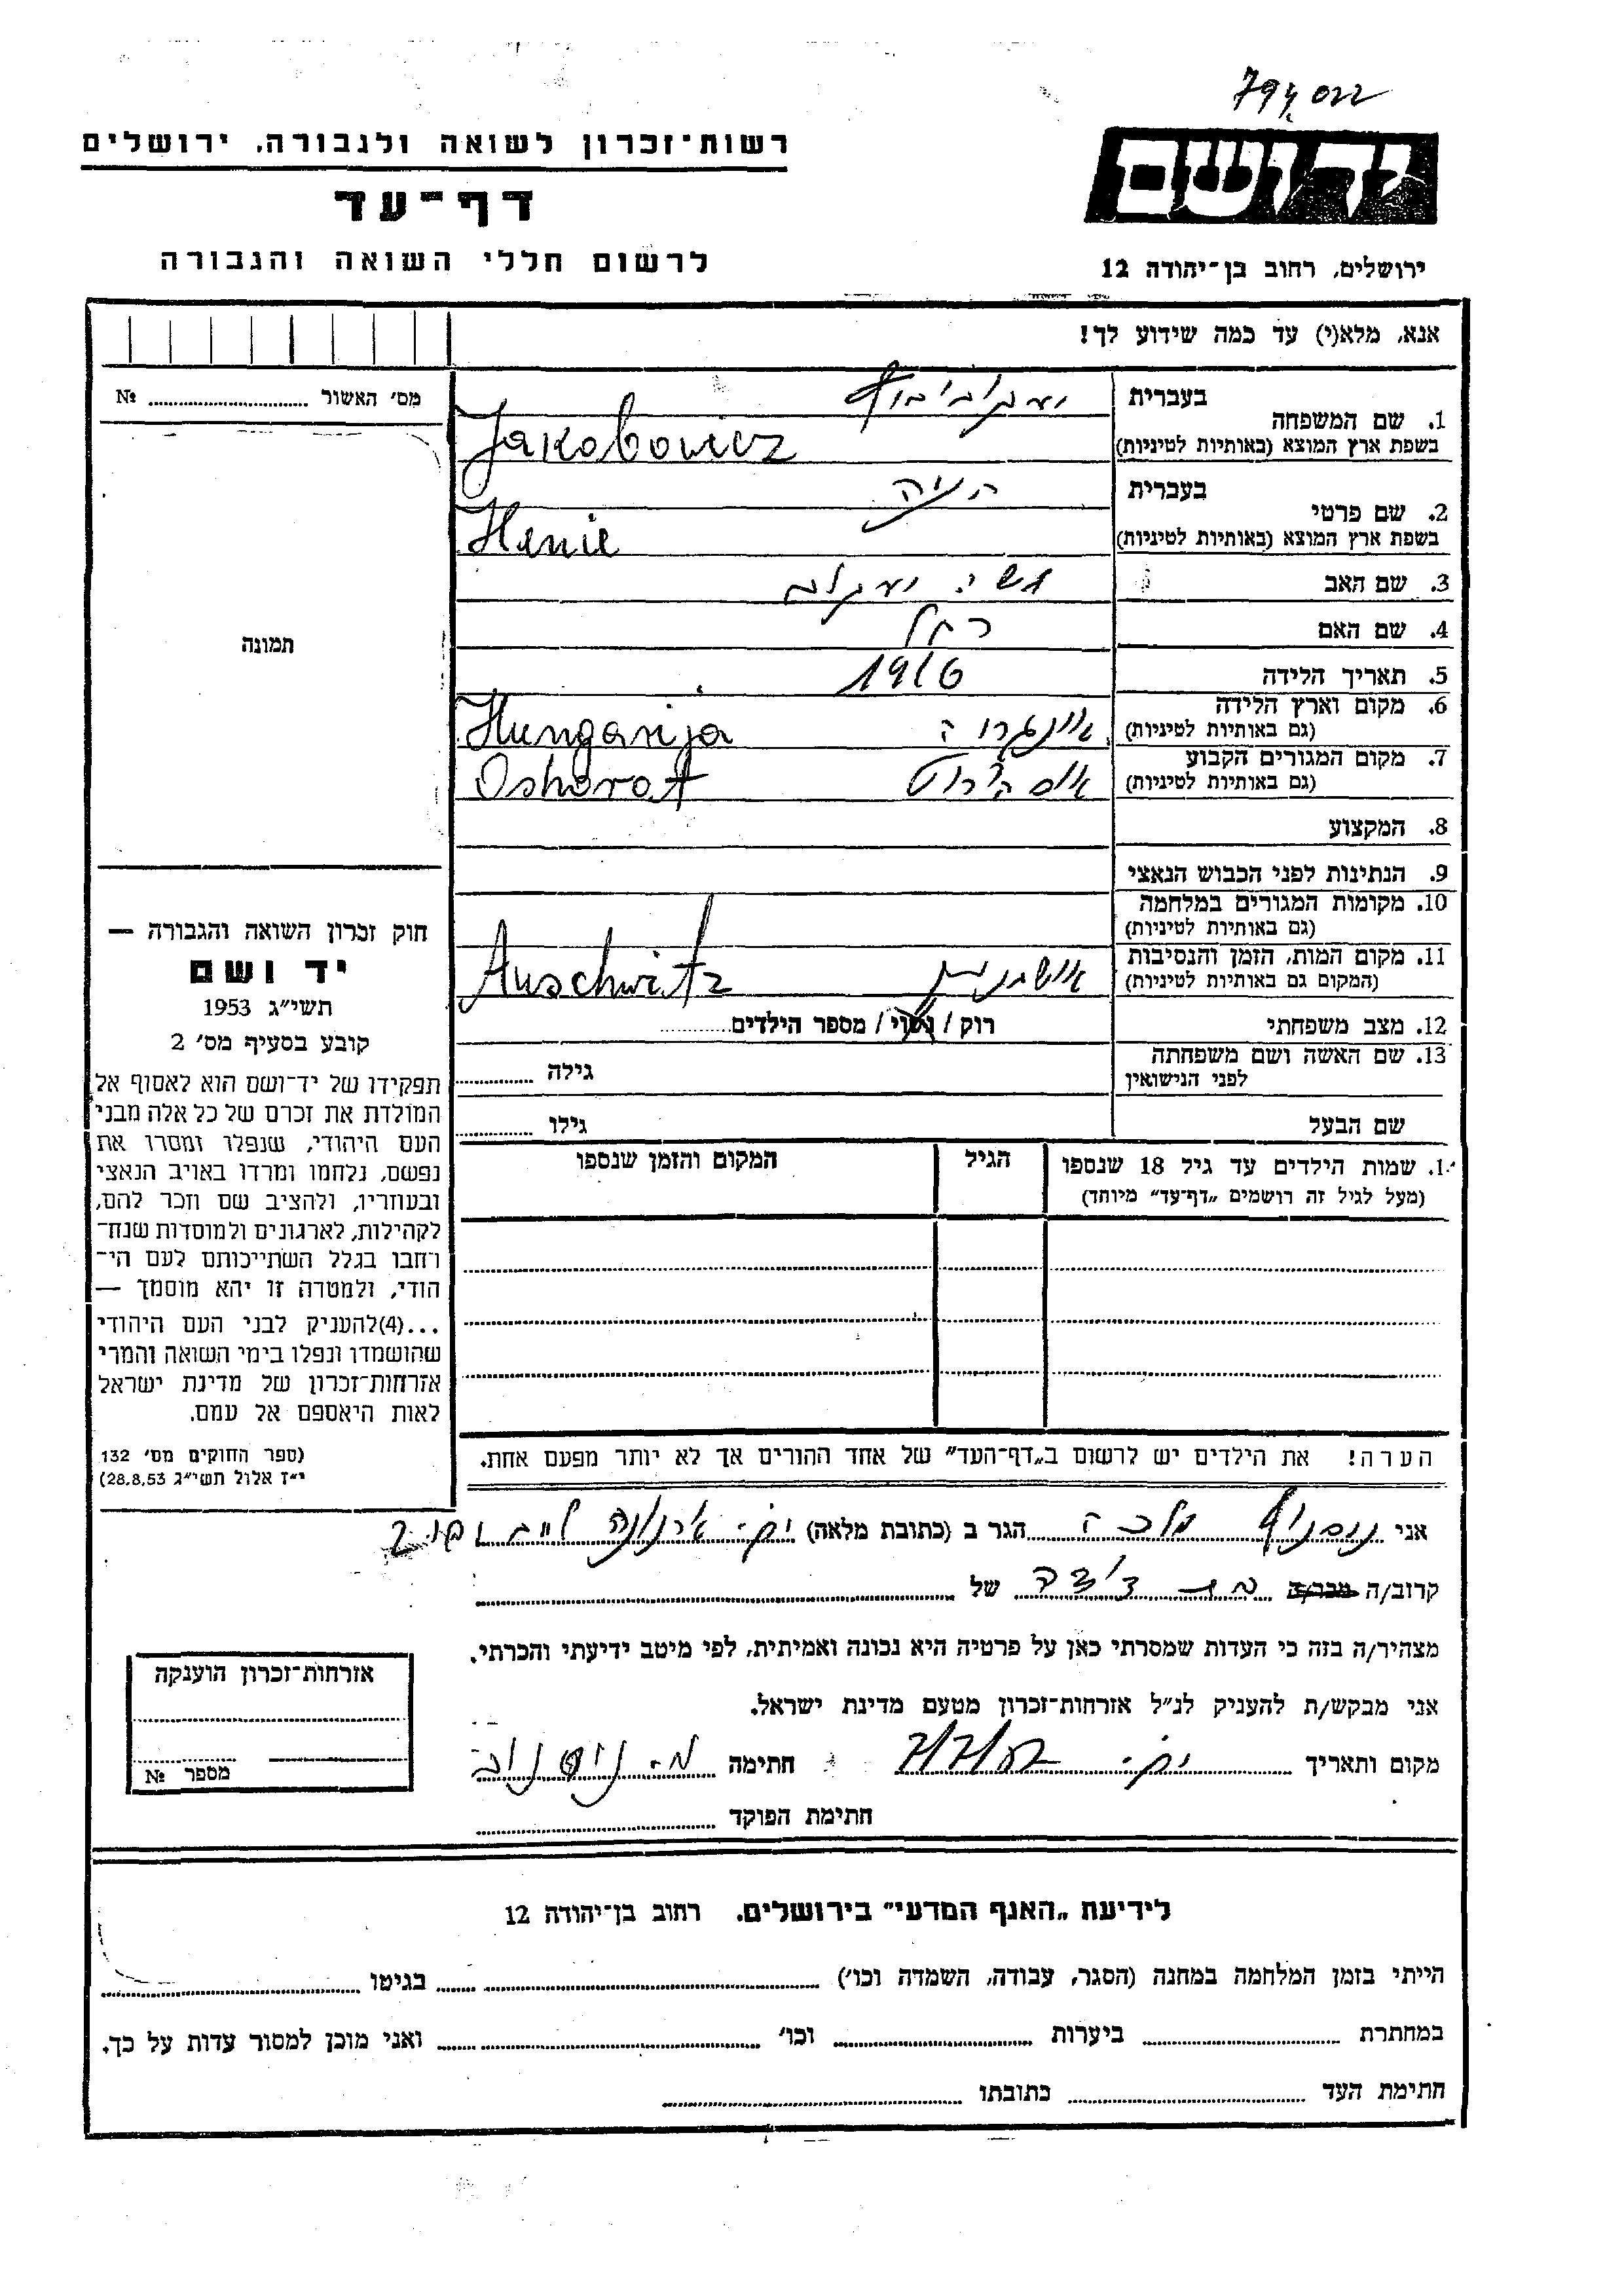 794,022
רשות־זכרון לשואה ולגבורה, ירושלים
דף־עד
לרשום חללי השואה והגבורה
יד ושם
ירושלים, רחוב בן־יהודה 12
אנא, מלא(י) עד כמה שידוע לך!
מס׳ האשור № 
תמונה
1. שם המשפחה
בעברית יעקובוביץ
בשפת ארץ המוצא (באותיות לטיניות) Jakobowicz
2. שם פרטי
בעברית הניה
בשפת ארץ המוצא (באותיות לטיניות) Henie
3. שם האב
4. שם האם רחל
5. תאריך הלידה 1916
6. מקום וארץ הלידה
(גם באותיות לטיניות) Hungarija
7. מקום המגורים הקבוע
(גם באותיות לטיניות) Oshorot
8. המקצוע
9. הנתינות לפני הכבוש הנאצי
10. מקומות המגורים במלחמה
(גם באותיות לטיניות)
11. מקום המות, הזמן והנסיבות
(המקום גם באותיות לטיניות) אושוויץ Auschwitz
12. מצב משפחתי רוק / נשוי / מספר הילדים
13. שם האשה ושם משפחתה
לפני הנישואין גילה
שם הבעל גילו
1. שמות הילדים עד גיל 18 שנספו
(מעל לגיל זה רושמים „דף־עד״ מיוחד)
הגיל
המקום והזמן שנספו
הערה! את הילדים יש לרשום ב„דף־העד״ של אחד ההורים אך לא יותר מפעם אחת.
חוק זכרון השואה והגבורה —
יד ושם
תשי״ג 1953
קובע בסעיף מס׳ 2
תפקידו של יד־ושם הוא לאסוף אל
המולדת את זכרם של כל אלה מבני
העם היהודי, שנפלו ומסרו את
נפשם, נלחמו ומרדו באויב הנאצי
ובעוזריו, ולהציב שם וזכר להם,
לקהילות, לארגונים ולמוסדות שנח־
רחבו בגלל השתייכותם לעם הי־
הודי, ולמטרה זו יהא מוסמך —
...(4)להעניק לבני העם היהודי
שהושמדו ונפלו בימי השואה והמרי
אזרחות־זכרון של מדינת ישראל
לאות היאספם אל עמם.
(ספר החוקים מס׳ 132
י״ז אלול תשי״ג 28,8,53)
אני מלכה הגר ב (כתובת מלאה)
קרוב/ה מכר/ה בת דודה של
מצהיר/ה בזה כי העדות שמסרתי כאן על פרטיה היא נכונה ואמיתית, לפי מיטב ידיעתי והכרתי.
אני מבקש/ת להעניק לנ״ל אזרחות־זכרון מטעם מדינת ישראל.
מקום ותאריך חתימה
חתימת הפוקד
אזרחות־זכרון הוענקה
מספר №
לידיעת „האגף המדעי״ בירושלים. רחוב בן־יהודה 12
הייתי בזמן המלחמה במחנה (הסגר, עבודה, השמדה וכו׳) בגיטו
במחתרת ביערות וכו׳ ואני מוכן למסור עדות על כך.
חתימת העד כתובתו